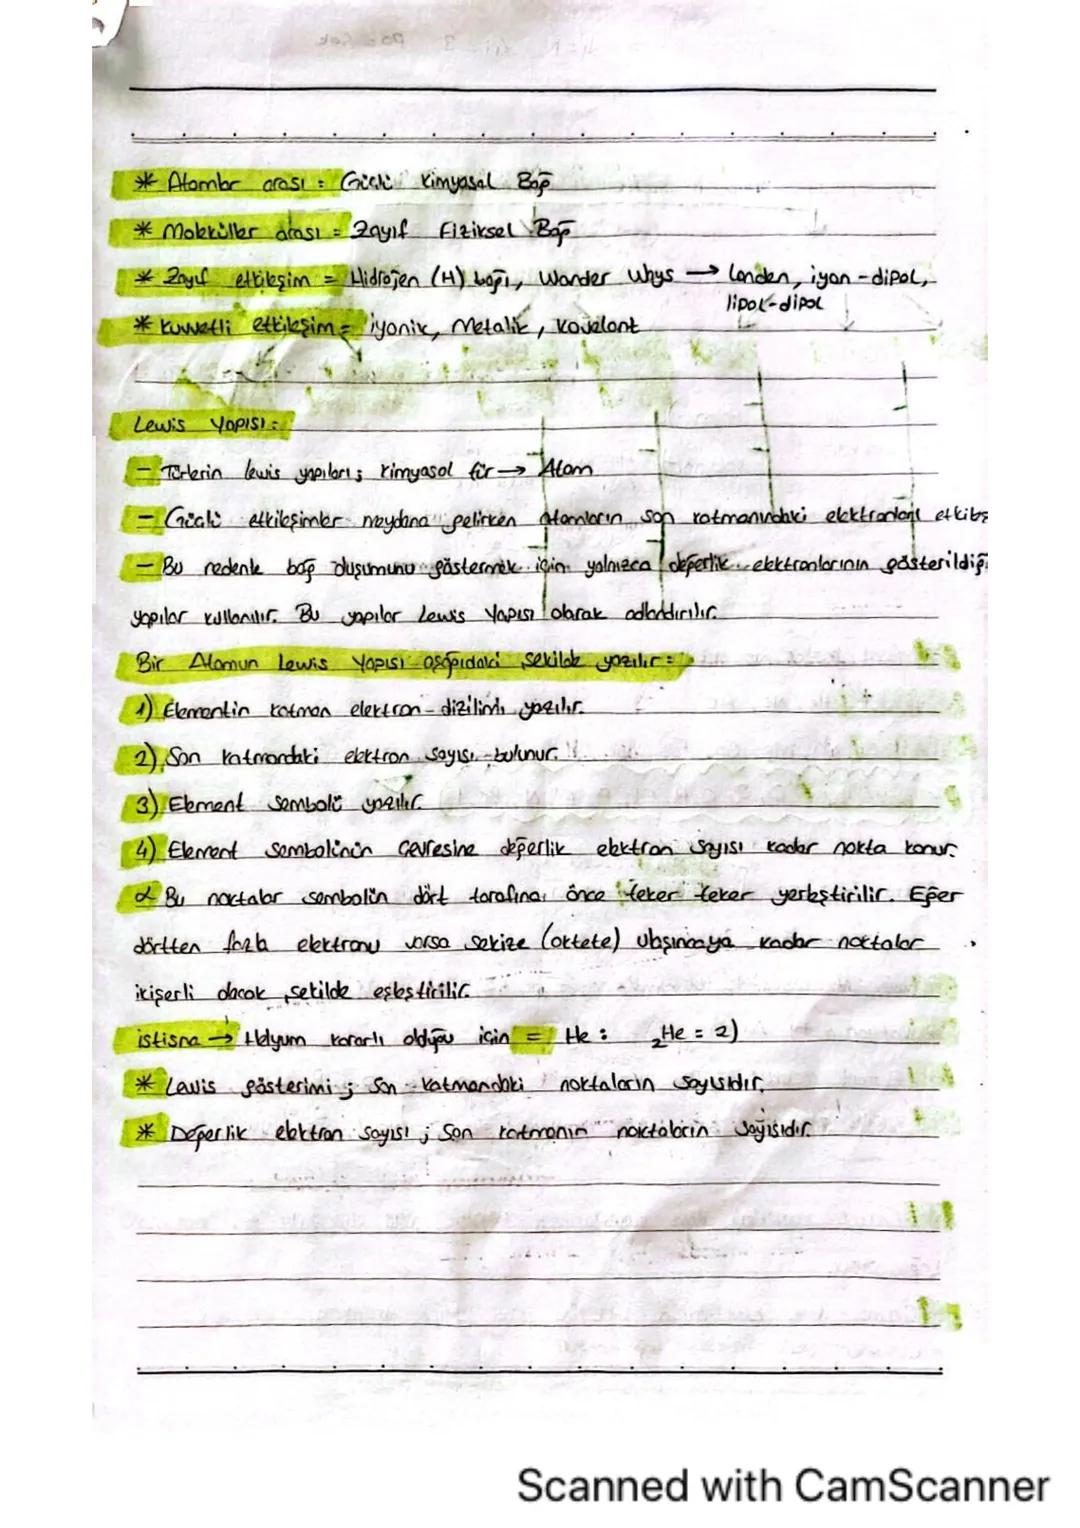 * Atomlar arası = Güçlü Kimyasal Bağ
* Moleküller arası = Zayıf Fiziksel Bağ
* Zayıf etkileşim = Hidrojen (H) bağı, Wander Whys → London, iyon-dipol,
lipol-dipol
* Kuvvetli etkileşim = iyonik, Metalik, kovelant
Lewis Yapısı:
- Türlerin lewis yapıları; kimyasal tür → Atom
- Güçlü etkileşimler meydana gelirken atomların son katmanındaki elektronları
- Bu nedenle bağ oluşumunu göstermek için yalnızca değerlik elektronlarının gösterildiği
yapılar kullanılır. Bu yapılar Lewis Yapısı olarak adlandırılır.
Bir Atomun Lewis Yapısı aşağıdaki şekilde yazılır:
1) Elementin katman elektron-dizilimi yazılır.
2) Son katmandaki elektron sayısı bulunur.
3) Element sembolü yazılır.
4) Element sembolünün çevresine değerlik elektron sayısı kadar nokta konur.
Bu noktalar sembolün dört tarafına önce teker teker yerleştirilir. Eğer
dörtten fazla elektronu varsa sekize (oktete) ulaşıncaya kadar noktalar
ikişerli olacak şekilde eşleştirilir.
istisna → Helyum kararlı olduğu için = He : ₂He = 2)
* Lewis gösterimi ; Son katmandaki noktaların sayısıdır.
* Değerlik elektron sayısı ; Son katmanın noktaların sayısıdır.
Scanned with CamScanner